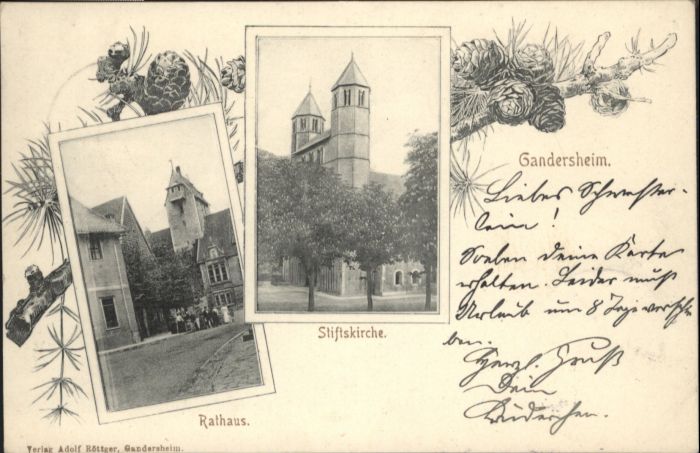 Gandersheim.
Liebes Schwester-
lein!
Soeben Deine Karte
erhalten. Leider muß
Urlaub um 8 Tage verschie
ben.
Herzl. Gruß
Dein
Brüderchen.
Stiftskirche.
Rathaus.
Verlag Adolf Röttger, Gandersheim.